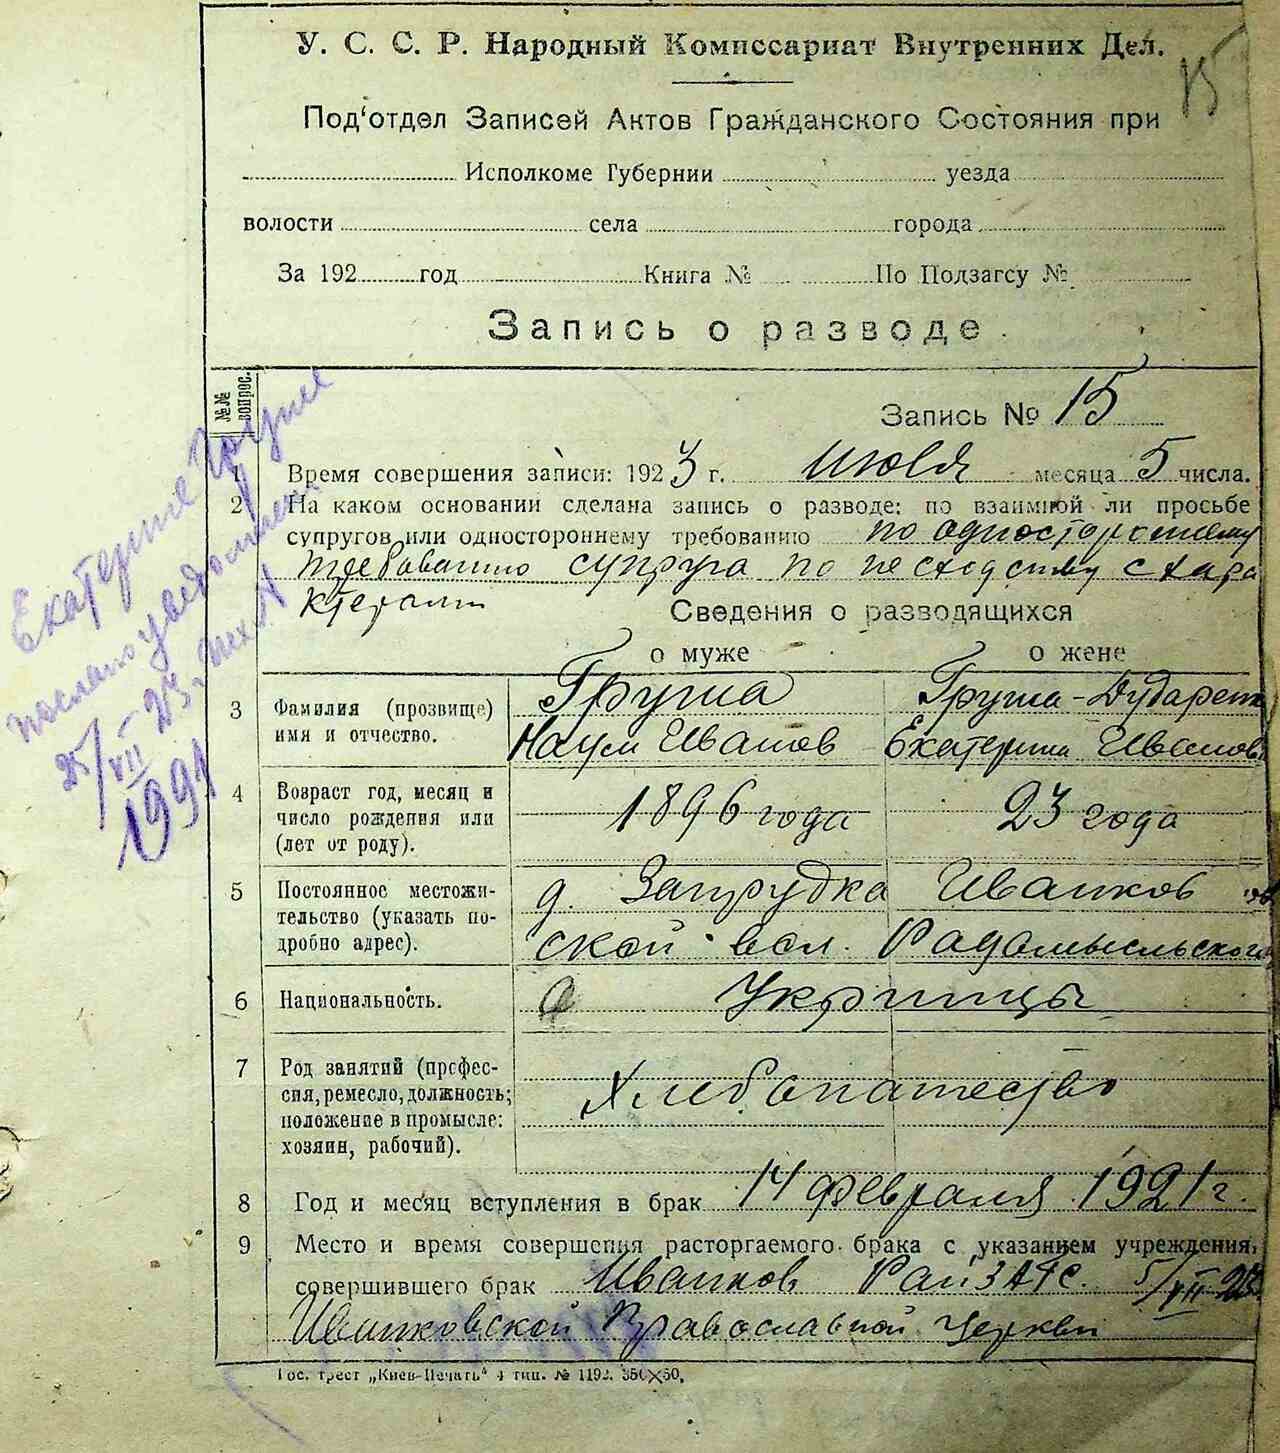 15
У. С. С. Р. Народный Комиссариат Внутренних Дел.
Под'отдел Записей Актов Гражданского Состояния при
Исполкоме Губернии уезда
волости села города
За 192 год Книга № По Подзагсу №
Запись о разводе
№№ вопрос.
Запись № 15
1 Время совершения записи: 1923 г. июля месяца 5 числа.
2 На каком основании сделана запись о разводе: по взаимной ли просьбе
супругов или одностороннему требованию по одностороннему
требованию супруга по несходству с хара
ктерами
Сведения о разводящихся
о муже о жене
3 Фамилия (прозвище) имя и отчество.
Груша
Наум Иванов
Груша-Дударенко
Екатерина Иванов
4 Возраст год, месяц и число рождения или (лет от роду).
1896 года
23 года
5 Постоянное местожи-
тельство (указать по-
дробно адрес).
д. Запрудка Иванков
ской вол. Радомысльского
6 Национальность.
Укринцы
7 Род занятий (профес-
сия, ремесло, должность;
положение в промысле:
хозяин, рабочий).
Хлебопашество
8 Год и месяц вступления в брак 14 февраля 1921 г.
9 Место и время совершения расторгаемого брака с указанием учреждения,
совершившего брак Иванков РайЗАГС. 5/VII-23
Иванковской Православной церкви
Гос. трест „Киев-Печать" 4 тип. № 1192. 350×50,
Екатерине Груше
послано уведомление
25/VII-23. №
1991